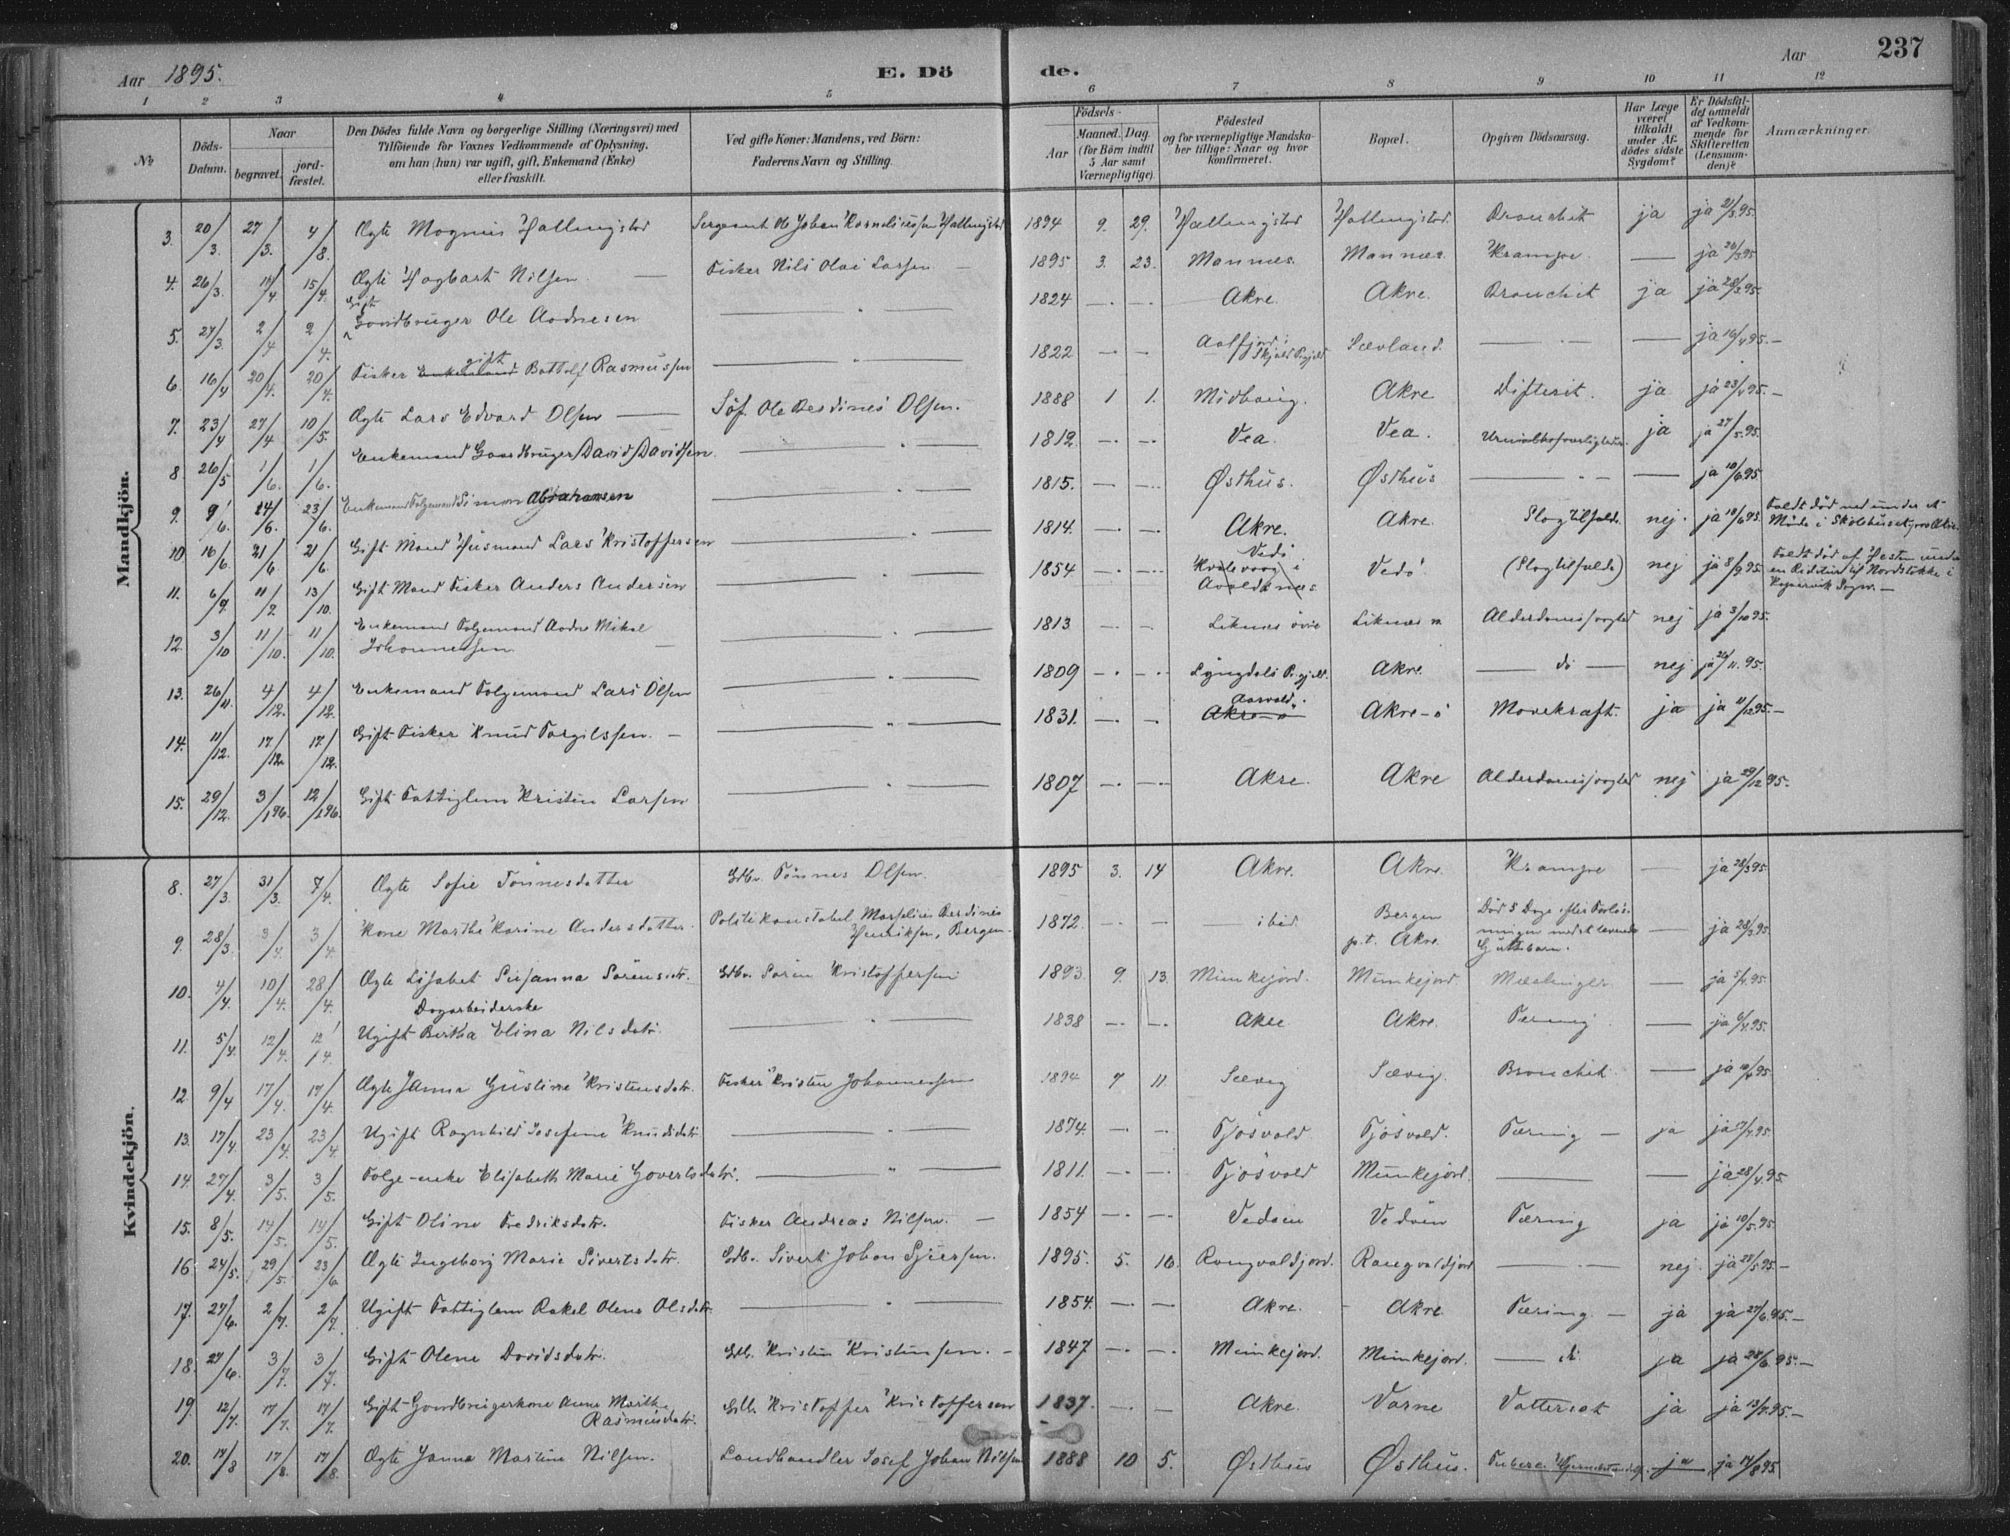 Aar 1895. E. Dö de. Aar 237
1 2 3 4 5 6 7 8 9 10 11 12
No
Döds-Datum.
Naar
begravet.
jordfæstet.
Den Dödes fulde Navn og borgerlige Stilling (Næringsvei) med
Tilföiende for Voxnes Vedkommende af Oplysning,
om han (hun) var ugift, gift, Enkemand (Enke)
eller fraskilt.
Ved gifte Koner: Mandens, ved Börn:
Faderens Navn og Stilling.
Födsels-
Aar
Maaned. Dag.
(for Börn indtil
5 Aar samt
Værnepligtige).
Födested
og for værnepligtige Mandskaber tillige: Naar og hvor
konfirmeret.
Bopæl.
Opgiven Dödsaarsag.
Har Læge
været
tilkaldt
under Afdödes sidste
Sygdom?
Er Dödsfaldet anmeldt
af Vedkommende for
Skifteretten
(Lensmanden)?
Anmærkninger.
Mandkjön.
3. 20/3. 27/3. 4/8. Ægte Magnus Hallingstad Sergeant Ole Johan Korneliussen Hallingstad 1894 9. 29. Hallingstad Hallingstad Bronchit ja ja 21/3 95.
4. 26/3. 14/4 15/4. Ægte Hagbart Nilsen. — Fisker Nils Olai Larsen — 1895 3. 23. Mannes. Mannes. Krampe. — ja 26/3 95
5. 27/3. 2/4 2/4. Gift Gaardbruger Ole Aadnesen — " — 1824 — — Akre. Akre. Bronchit ja ja 28/3 95.
6. 16/4 20/4. 20/4. Fisker Enkemand gift Bottolf Rasmussen — " — 1822 — — Aalfjord i Skjold Prgjeld Sævland. — — ja 16/4 95.—
7. 23/4 27/4 10/5. Ægte Lars Edvard Olsen — Söf. Ole Berdines Olsen. 1888 1 1. Midböig. Akre Difterit. ja ja 23/4 95.—
8. 26/5 1/6. 1/6. Enkemand Gaardbruger David Davidsen. — " — 1812. — — Vea. Vea. ja ja 27/5 95.
9. 9/6. 14/6. 23/6. Enkemand Folgemand Simon Abrahamsen — " — 1815. — — Østhus. Østhus — " — — ja 10/6 95
10. 16/6 21/6 21/6. Gift Mand Husmand Lars Kristoffersen — " — 1814. — — Akre. Akre. Slagtilfælde. nej. ja 18/6 95. Faldt död ned under et
Möde i Skolehuset paa Akre.
11. 6/9. 11/9. 13/10. Gift Mand Fisker Anders Andersen — " — 1854 — — Kvalavaag i Avaldsnes Vedö Vedö (Slagtilfælde) nej ja 8/9 95 Faldt död af Hesten under
en Ridetur af Nordstokke i
Kopervik Sogn.—
12. 3/10 11/10. 11/10. Enkemand Folgemand Aadne Mikal
Johannessen. — " — 1813 — — Liknes övre Liknes n Alderdomssvaghed nej ja 3/10 95.
13. 26/11. 4/12. 4/12. Enkemand Folgemand Lars Olsen — " — 1809 — — Lyngdals Prgjeld. Akre. — do — nej ja 26/11. 95.
14. 11/12. 17/12. 17/12. Gift Fisker Knud Torgilssen. — — " — 1831. — — Akre-ö Aarvold. Akre-ö Mavekræft. ja ja 11/12 95.—
15. 29/12. 3/1 96. 12/1 96. Gift Fattiglem Kristen Larsen — " — 1807 — — Akre. Akre Alderdomssvaghed nej ja 29/12 95.
Kvindekjön.
8. 27/3. 31/3. 7/4. Ægte Sofie Tönnesdatter Gdbr. Tönnes Olsen. 1895 3. 14 Akre. Akre. Krampe — ja 28/3 95.
9 28/3. 3/4. 3/4. Kone Marthe Karine Andersdatter. Politikonstabel Marselius Berdines
Henriksen, Bergen. 1872. — — — ibid Bergen
p.t. Akre. Död 5 Dage efter Forlös-
ningen med et levende
Guttebarn. — ja 28/3 95.
10. 4/4 10/4. 28/4. Ægte Lisabet Susanna Sörensdtr. Gdbr. Sören Kristoffersen 1893. 9. 13. Munkejord. Munkejord. Mæslinger — ja 5/4. 95.
11. 5/4. 12/4. 12/4. Dagarbeiderske
Ugift Bertha Elina Nilsdatr. — " — 1838 — — Akre Akre. Tæring — ja 6/4 95.
12 9/4 17/4. 17/4. Ægte Janna Gustine Kristensdatr. Fisker Kristen Johannessen 1894 7 11 Sævig Sævig. Bronchit. — ja 10/4 95
13. 17/4. 23/4. 23/4. Ugift Ragnhild Josefine Knudsdatr. — " — 1874. — — Tjösvold Tjösvold. Tæring — ja ja 17/4 95
14. 27/4. 3/5. 3/5. Folge-enke Elisabeth Marie Govertsdatr. — " — 1811. — — Tjösvold Munkejord. — — ja 28/4. 95
15. 8/5. 14/5. 14/5. Gift Oline Fredriksdatr. Fisker Andreas Nilsen. — 1854 — — Vedöen Vedöen Tæring ja ja 10/5. 95
16. 24/5. 29/5. 23/6 Ægte Ingeborg Marie Sivertsdatr. Gdbr. Sivert Johan Sjursen. 1895. 5. 10. Rangvaldjord. Rangvaldjord — nej. ja 28/5 95.—
17. 27/6. 2/7. 2/7. Ugift Fattiglem Rakel Olena Olsdatr. — " — 1854. — — Akre. — Akre Tæring. — ja ja 27/6 95.—
18. 27/6. 3/7. 3/7. Gift Olene Davidsdatr. Gdb. Kristen Kristensen. — 1847 — — Munkejord. Munkejord. — do ja ja 28/6. 95.—
19. 12/7. 17/7. 17/7. Gift Gaardbrugerkone Anne Marthe
Rasmusdatr. Gdb. Kristoffer Kristoffersen 1837. — — Akre. Varne Vattersot ja ja 13/7 95.—
20. 14/8 17/8. 17/8. Ægte Janna Martine Nilsen. Landhandler Josef Johan Nilsen 1888 10 5. Østhus Østhus. ja ja 17/8 95.